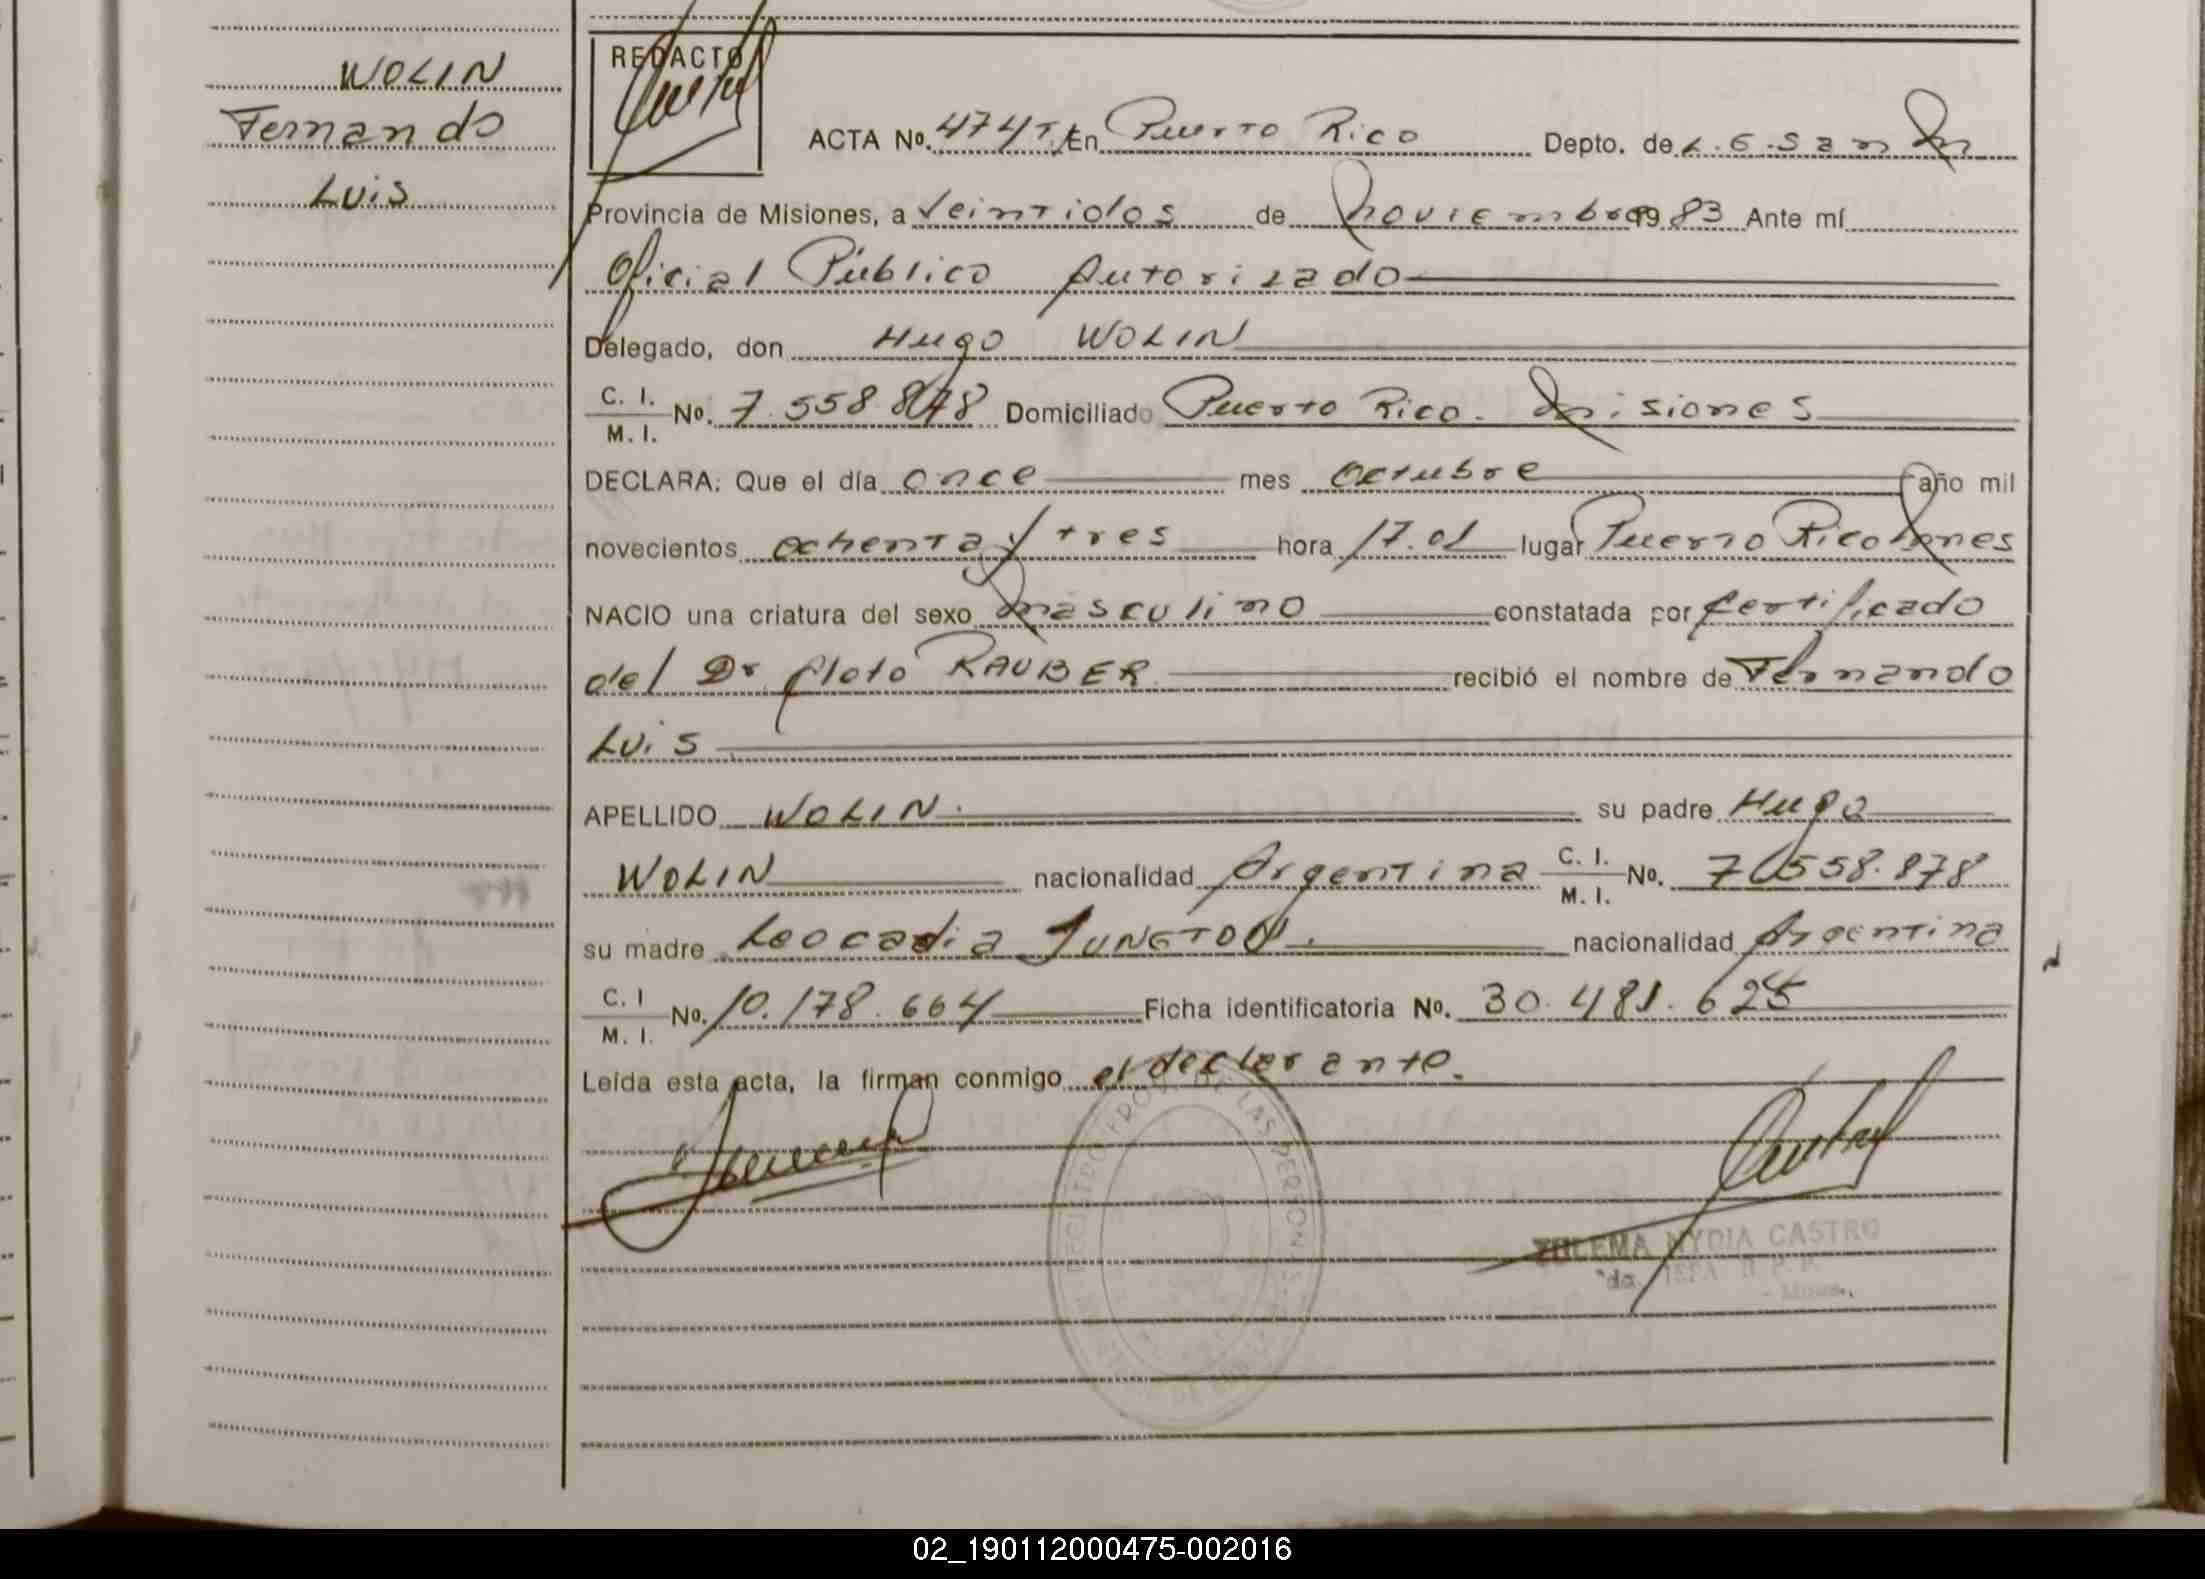 WOLIN
Fernando
Luis
REDACTO
ACTA Nº. 474 T. En Puerto Rico Depto. de L.G. San M
Provincia de Misiones, a Veintidos de noviembre 19 83 Ante mí
Oficial Público Autorizado
Delegado, don Hugo WOLIN
C. I.
M. I. Nº. 7.558.878 Domiciliado Puerto Rico. Misiones
DECLARA: Que el día once mes octubre año mil
novecientos ochenta y tres hora 17.01 lugar Puerto Rico Mnes
NACIO una criatura del sexo masculino constatada por certificado
del Dr. RAUBER recibió el nombre de Fernando
Luis
APELLIDO WOLIN. su padre Hugo
WOLIN nacionalidad Argentina C. I.
M. I. Nº. 7.558.878
su madre Leocadia JUNGTON. nacionalidad Argentina
C. I
M. I. Nº. 10.178.664 Ficha identificatoria Nº. 30.481.625
Leída esta acta, la firman conmigo el declarante.
DE LAS PERSONAS
ZULEMA NYDIA CASTRO
02_190112000475-002016